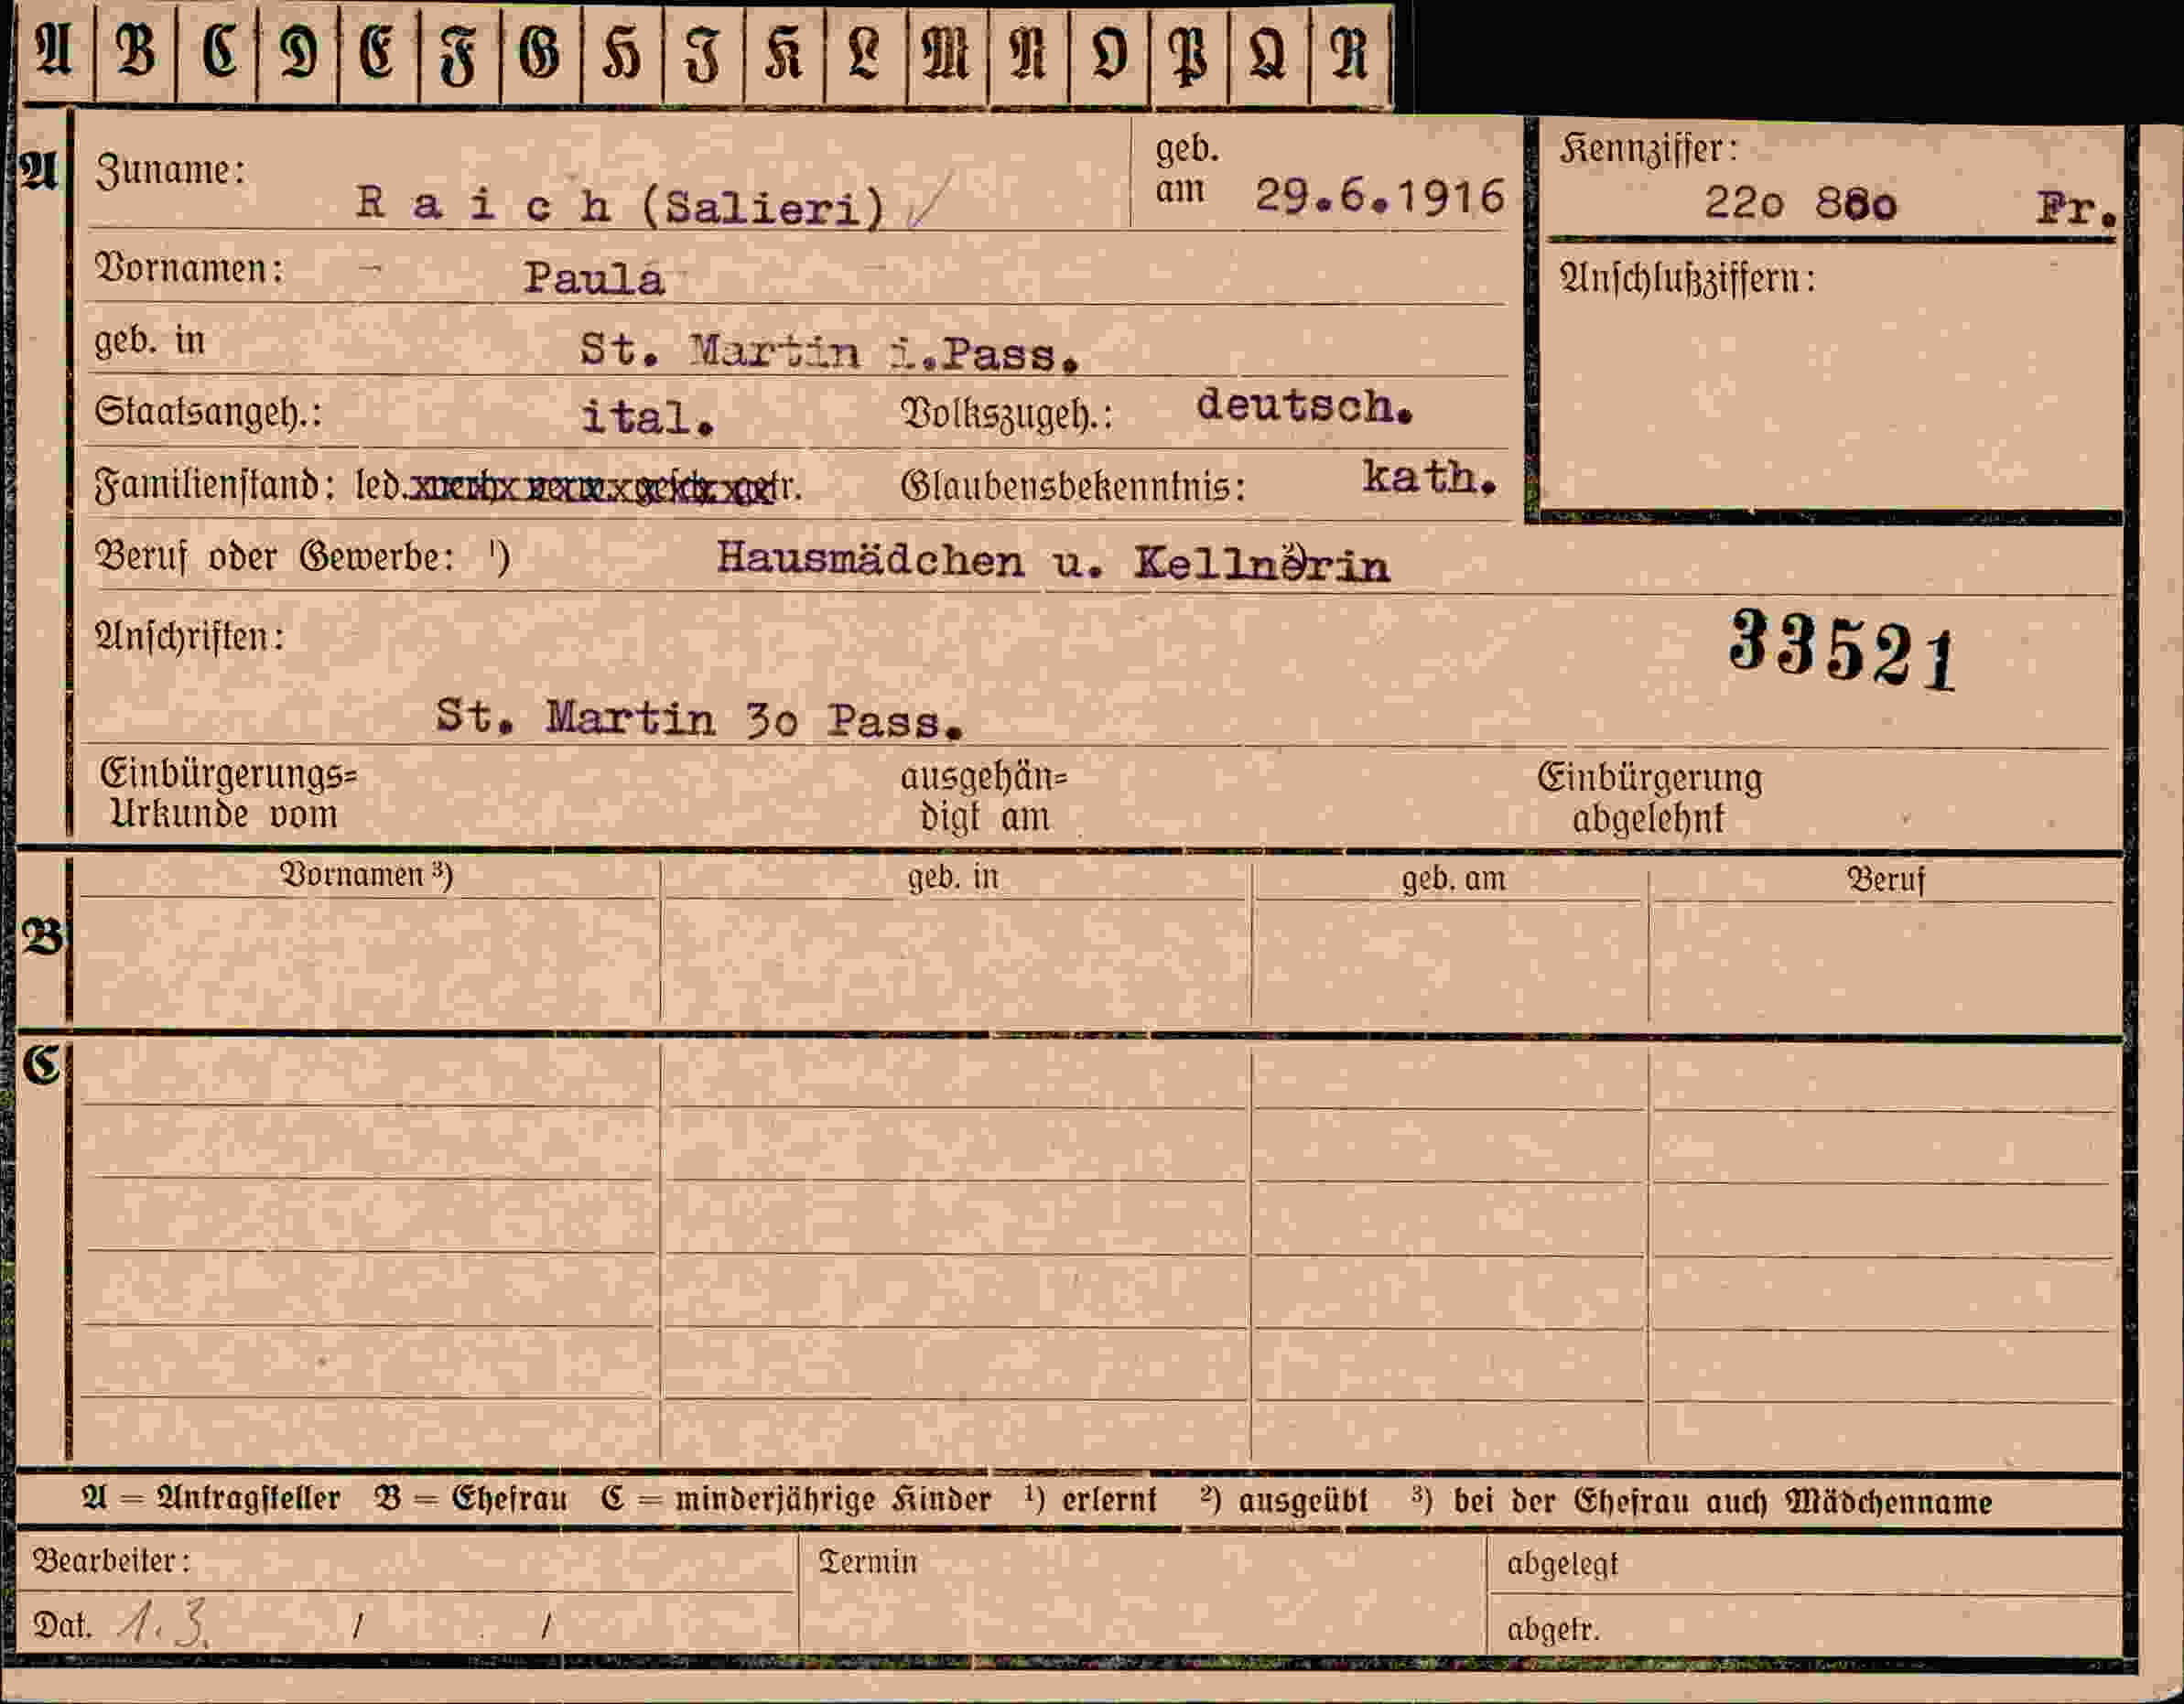 A B C D E F G H I K L M N O P Q R
A
Zuname: Raich (Salieri)
geb. am 29.6.1916
Kennziffer: 22o 88o Fr.
Vornamen: Paula
Anschlußziffern:
geb. in St. Martin i.Pass.
Staatsangeh.: ital. Volkszugeh.: deutsch.
Familienstand: led. getr. Glaubensbekenntnis: kath.
Beruf oder Gewerbe: ¹) Hausmädchen u. Kellnerin ²)
Anschriften:
33521
St. Martin 3o Pass.
Einbürgerungs= ausgehän= Einbürgerung
Urkunde vom digt am abgelehnt
B
Vornamen ³) geb. in geb. am Beruf
C
A = Antragsteller B = Ehefrau C = minderjährige Kinder ¹) erlernt ²) ausgeübt ³) bei der Ehefrau auch Mädchenname
Bearbeiter: Termin abgelegt
Dat. 1.3. / / abgetr.